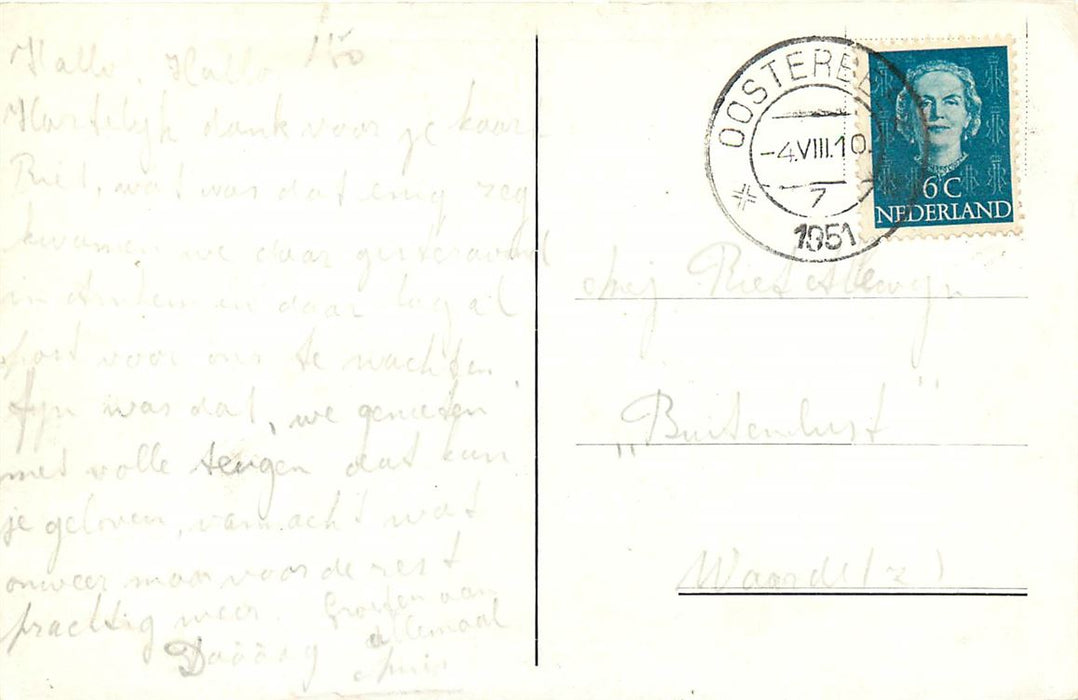 Hallo, Hallo 150
Hartelijk dank voor je kaart
Riet, wat was dat enig zeg
kwamen we daar gisteravond
in Arnhem en daar lag al
post voor ons te wachten.
fijn was dat, we genieten
met volle teugen dat kun
je geloven, vannacht wat
onweer maar voor de rest
prachtig weer. Groeten van
allemaal
Dааааg
OOSTERBEEK
-4.VIII.10.
7
1951
6C
NEDERLAND
Riet
„Buitenlust"
Waarde (Z)